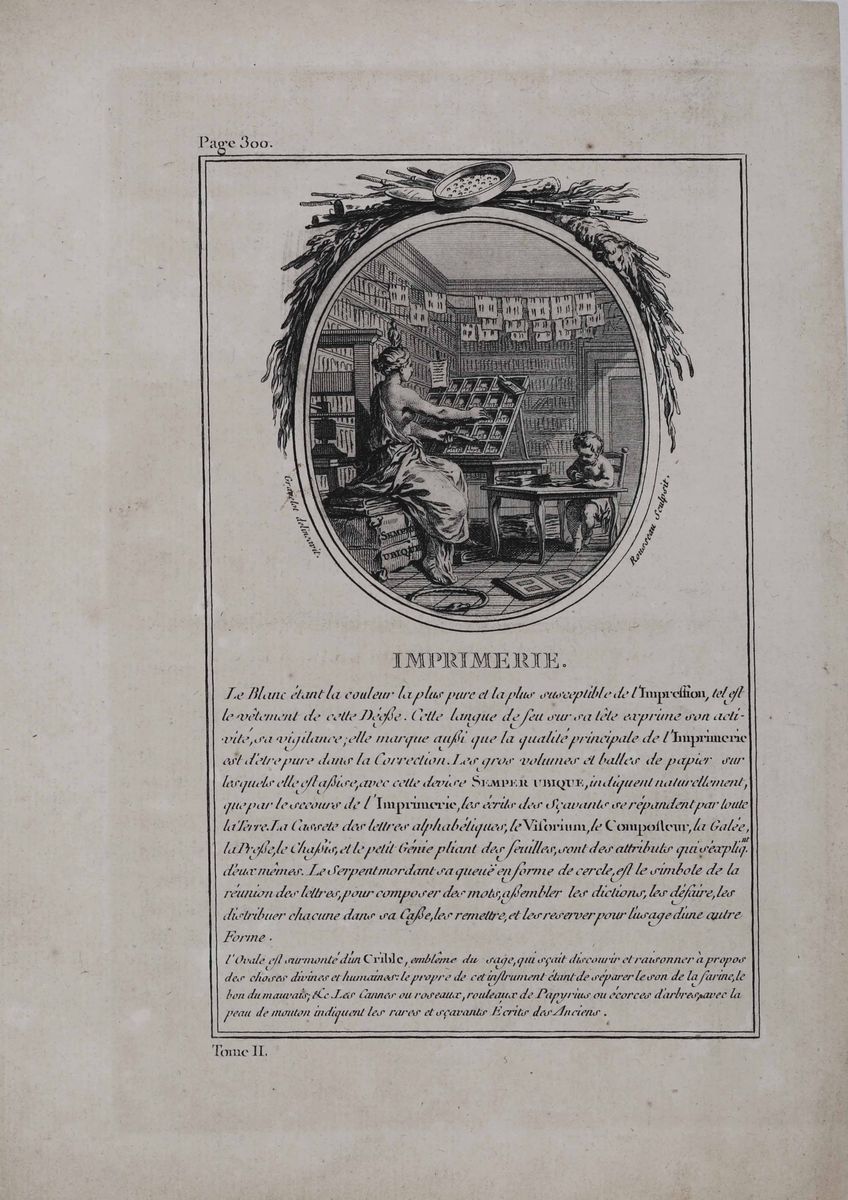 Page 300.
SEMPER
UBIQUE
Gravelot delineavit.
Rousseau Sculpsit.
IMPRIMERIE.
Le Blanc étant la couleur la plus pure et la plus susceptible de l'Impression, tel est
le vêtement de cette Déeße. Cette langue de feu sur sa tête exprime son acti-
vité, sa vigilance; elle marque außi que la qualité principale de l'Imprimerie
est d'être pure dans la Correction. Les gros volumes et balles de papier sur
lesquels elle est aßise, avec cette devise SEMPER UBIQUE, indiquent naturellement,
que par le secours de l'Imprimerie, les écrits des Sçavants se répandent par toute
la Terre. La Cassete des lettres alphabétiques, le Visorium, le Composteur, la Galée,
la Preße, le Chaßis, et le petit Génie pliant des feuilles, sont des attributs qui s'expliq.nt
d'eux mêmes. Le Serpent mordant sa queuë en forme de cercle, est le simbole de la
réunion des lettres, pour composer des mots, aßembler les dictions, les défaire, les
distribuer chacune dans sa Caße, les remettre, et les reserver pour l'usage d'une autre
Forme.
l'Ovale est surmonté d'un Crible, emblême du sage, qui sçait discourir et raisonner à propos
des choses divines et humaines: le propre de cet instrument étant de séparer le son de la farine, le
bon du mauvais; &c. Les Cannes ou roseaux, rouleaux de Papyrius ou écorces d'arbres, avec la
peau de mouton indiquent les rares et sçavants Ecrits des Anciens.
Tome II.